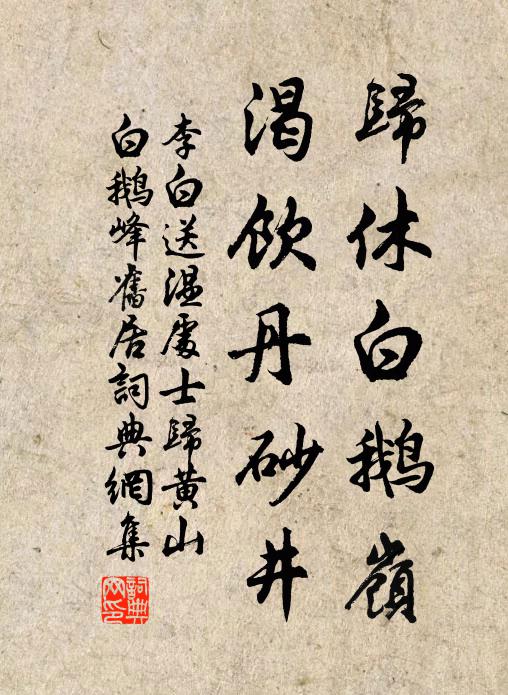 歸休白鵝嶺
渴飲丹砂井
李白送温處士歸黄山
白鵝峰舊居詞典網集
詞典